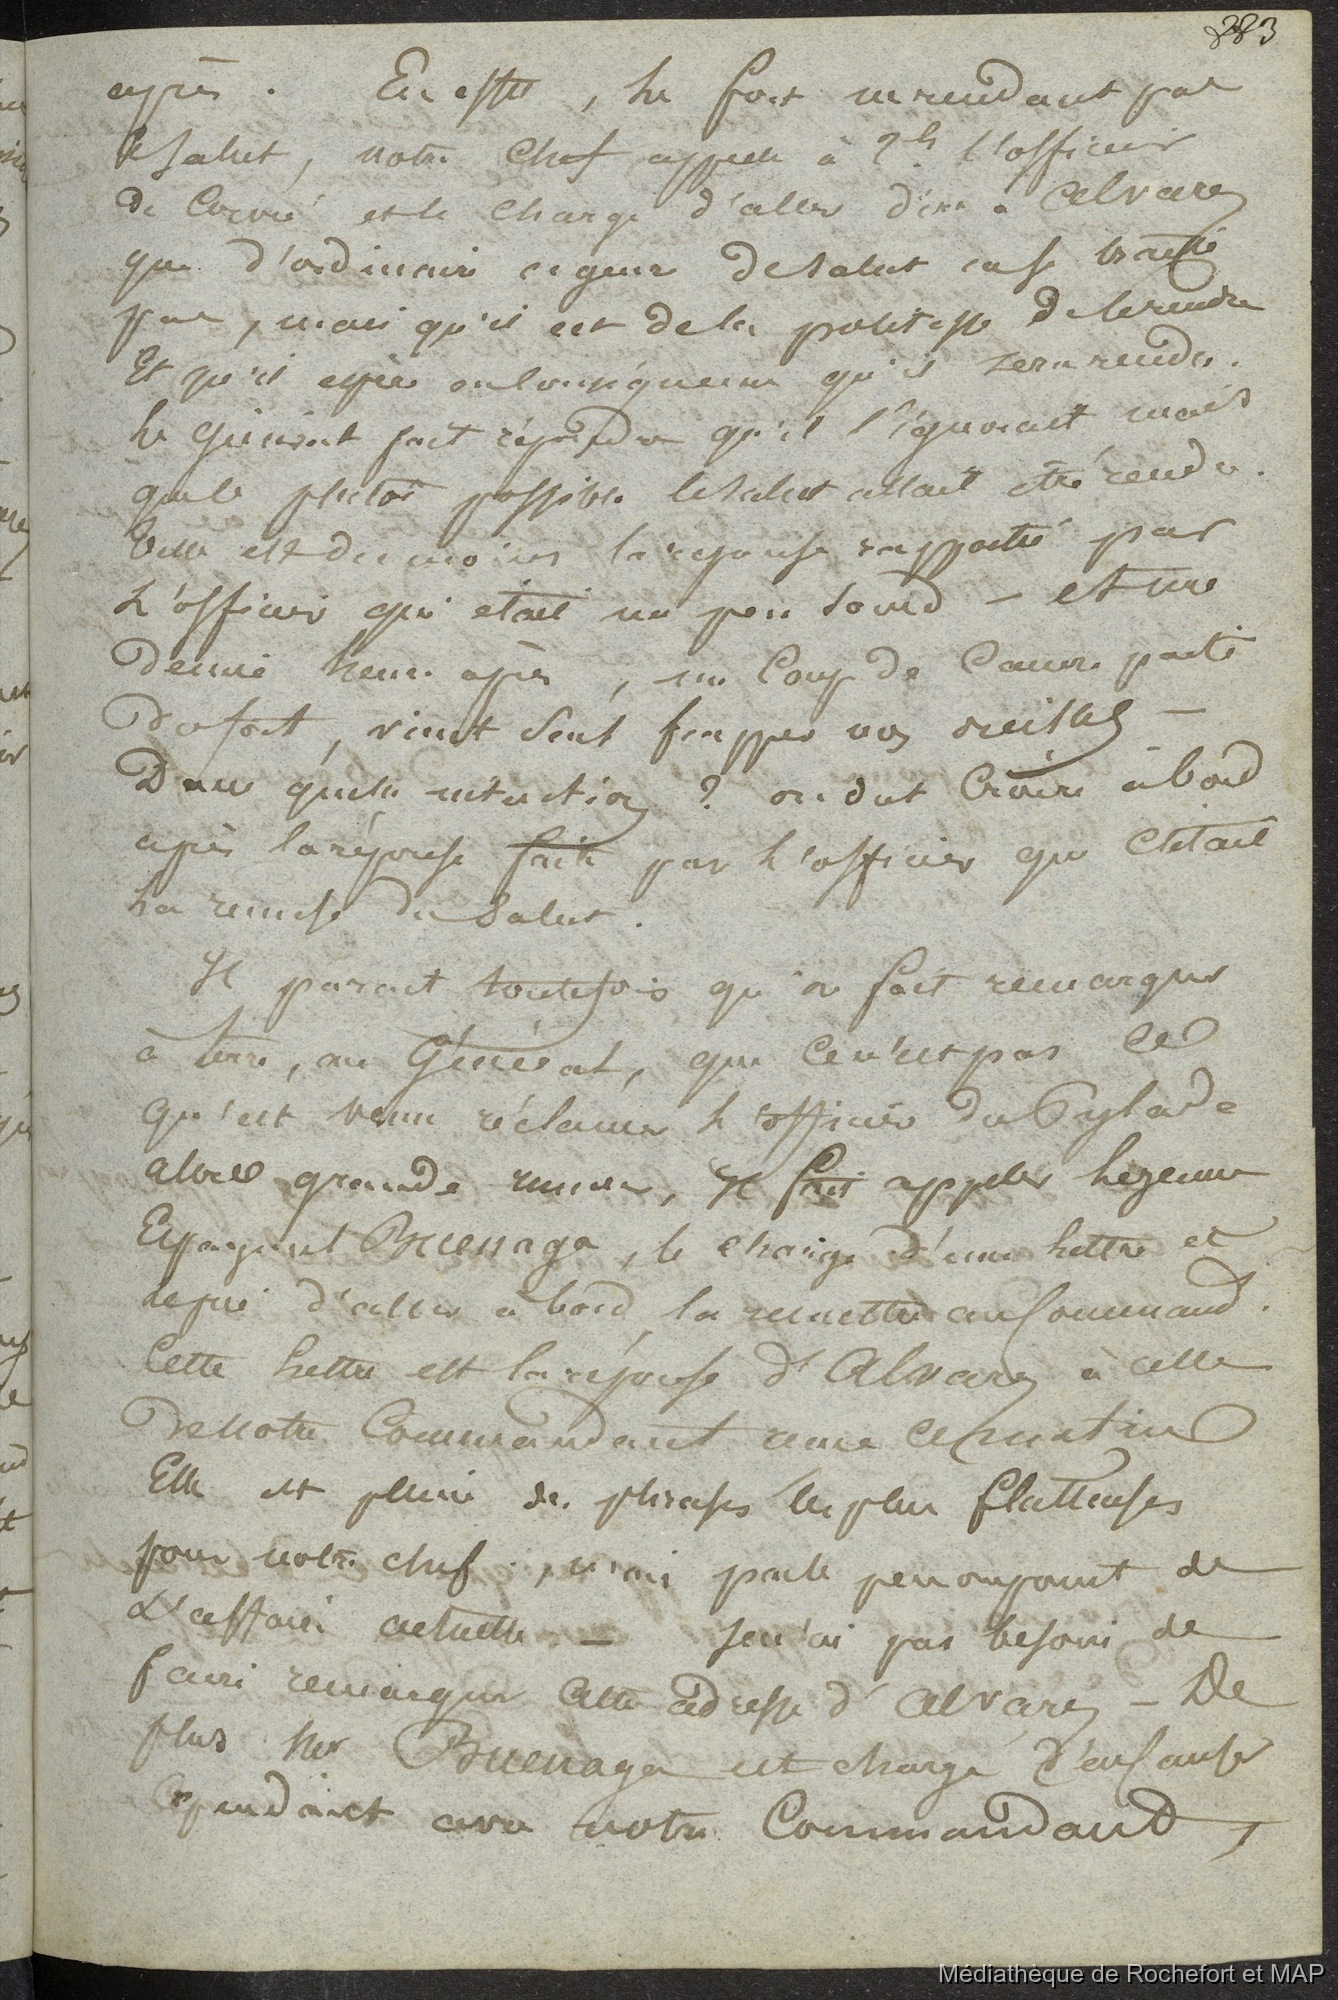 883
après. En effet, le fort ne rendant pas
le salut, notre Chef appelle à 2h. l'officier
de Corvé et le charge d'aller dire à Alvarez
que d'ordinaire ce genre de salut ne se traite
pas, mais qu'il est de la politesse de le rendre
Et qu'il espère en conséquence qu'il sera rendu.
Le Général fait répondre qu'il l'ignorait mais
que le plutôt possible le salut allait être rendu.
Telle est du moins la reponse rapporté par
l'officier qui etait un peu sourd – et une
demie heure après, un Coup de Canon parti
du fort, vient seul frapper nos oreilles –
Dans quelle intention ? on dut Croire à bord
après la réponse faite par l'officier que c'était
la remise du salut.
Il parait toutefois qu'on fait remarquer
à terre, au Général, que ce n'est pas ce
qu'est venu réclamer l'officier du Pylade
alors grande rumeur, Il fait appeler le jeune
Espagnol Buenaga, le charge d'une lettre et
le prie d'aller à bord la remettre au Command.
Cette lettre est la réponse d'Alvarez à celle
de notre Commandant remise ce matin
Elle est pleine de phrases les plus flatteuses
pour notre chef, mais parle peu ou point de
L'affaire actuelle – Je n'ai pas besoin de
faire remarquer cette adresse d'Alvarez – De
plus Mr Buenaga est chargé d'en causer
Cependant avec notre Commandand,
Médiathèque de Rochefort et MAP